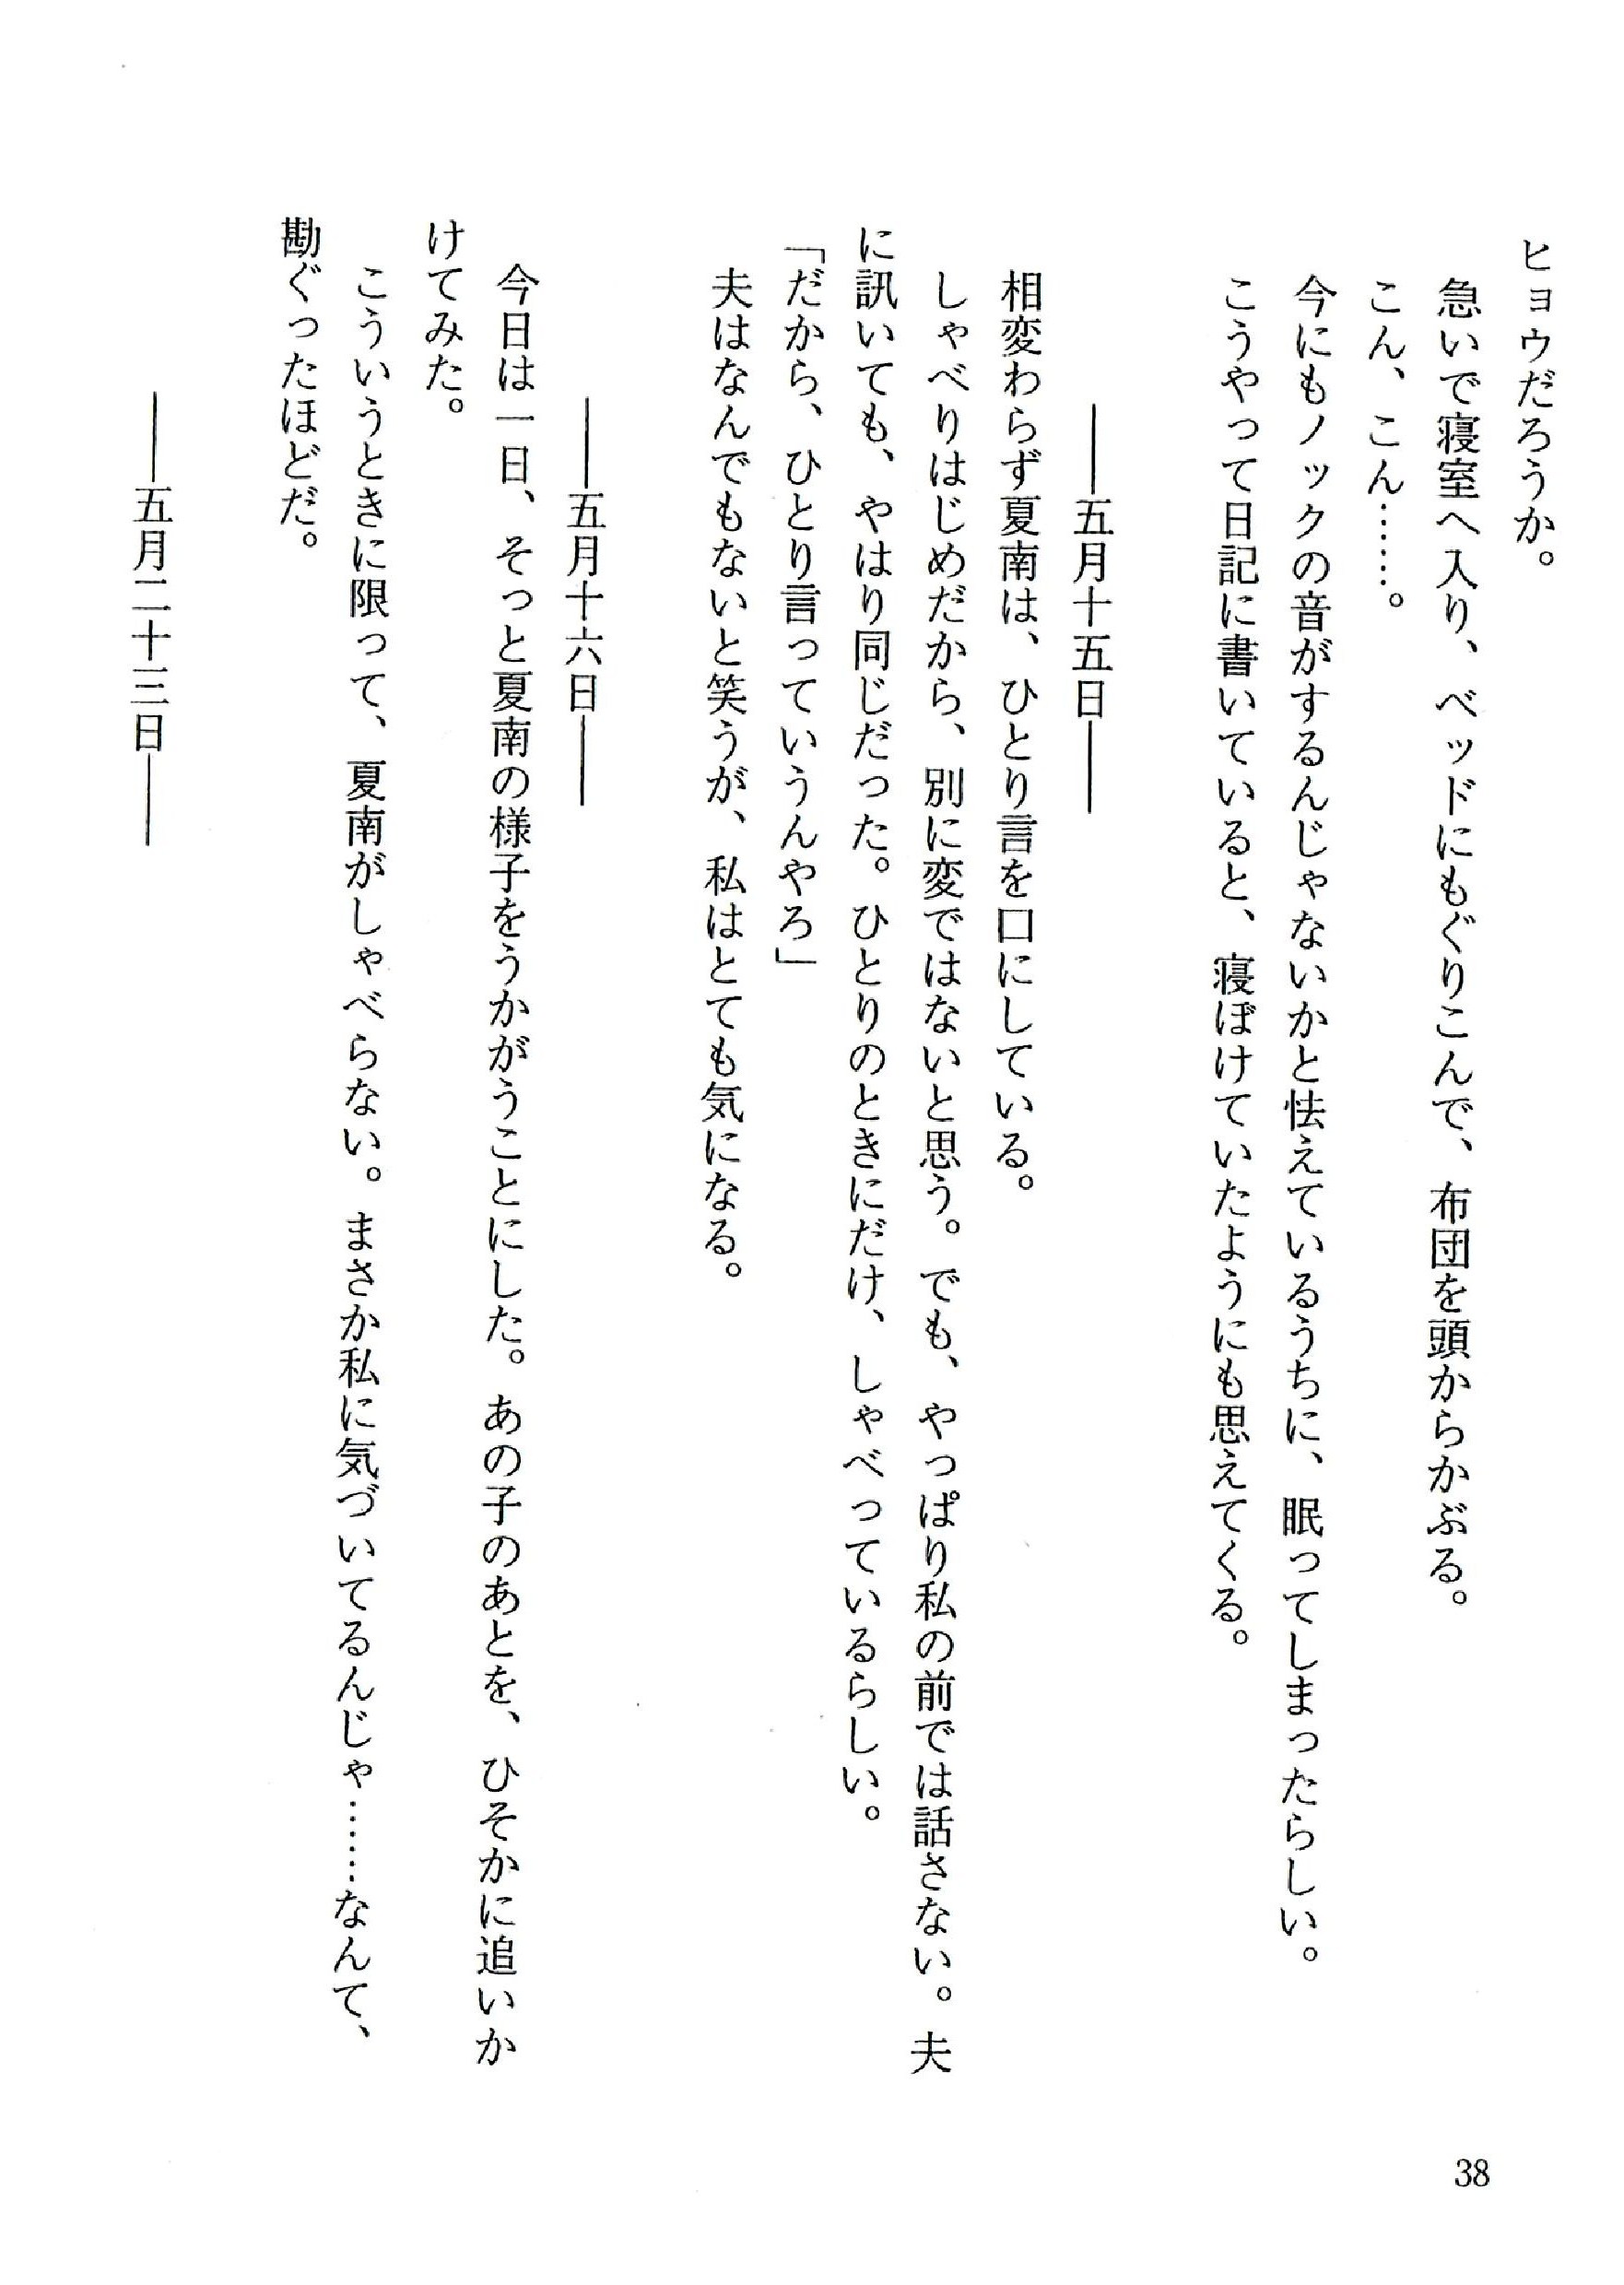 ヒョウだろうか。
　急いで寝室へ入り、ベッドにもぐりこんで、布団を頭からかぶる。
　こん、こん……。
　今にもノックの音がするんじゃないかと怯えているうちに、眠ってしまったらしい。
　こうやって日記に書いていると、寝ぼけていたようにも思えてくる。
――五月十五日――
　相変わらず夏南は、ひとり言を口にしている。
　しゃべりはじめだから、別に変ではないと思う。でも、やっぱり私の前では話さない。夫
に訊いても、やはり同じだった。ひとりのときにだけ、しゃべっているらしい。
「だから、ひとり言っていうんやろ」
　夫はなんでもないと笑うが、私はとても気になる。
――五月十六日――
　今日は一日、そっと夏南の様子をうかがうことにした。あの子のあとを、ひそかに追いか
けてみた。
　こういうときに限って、夏南がしゃべらない。まさか私に気づいてるんじゃ……なんて、
勘ぐったほどだ。
――五月二十三日――
38